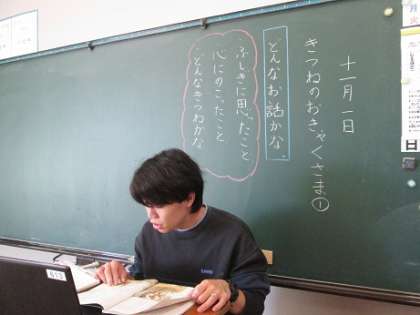 十一月一日
きつねのおきゃくさま①
どんなお話かな。
ふしぎに思ったこと
心にのこったこと
どんなきつねかな